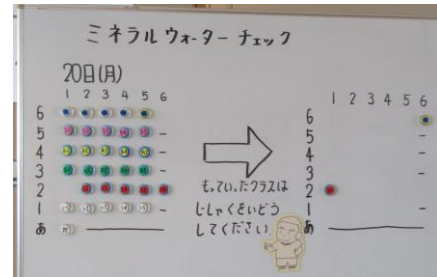 ミネラルウォーターチェック
20日(月)
1 2 3 4 5 6
6
5 -
4 -
3 -
2
1 -
あ
もっていったクラスは
じしゃくをいどう
してください
1 2 3 4 5 6
6
5 -
4 -
3 -
2
1 -
あ